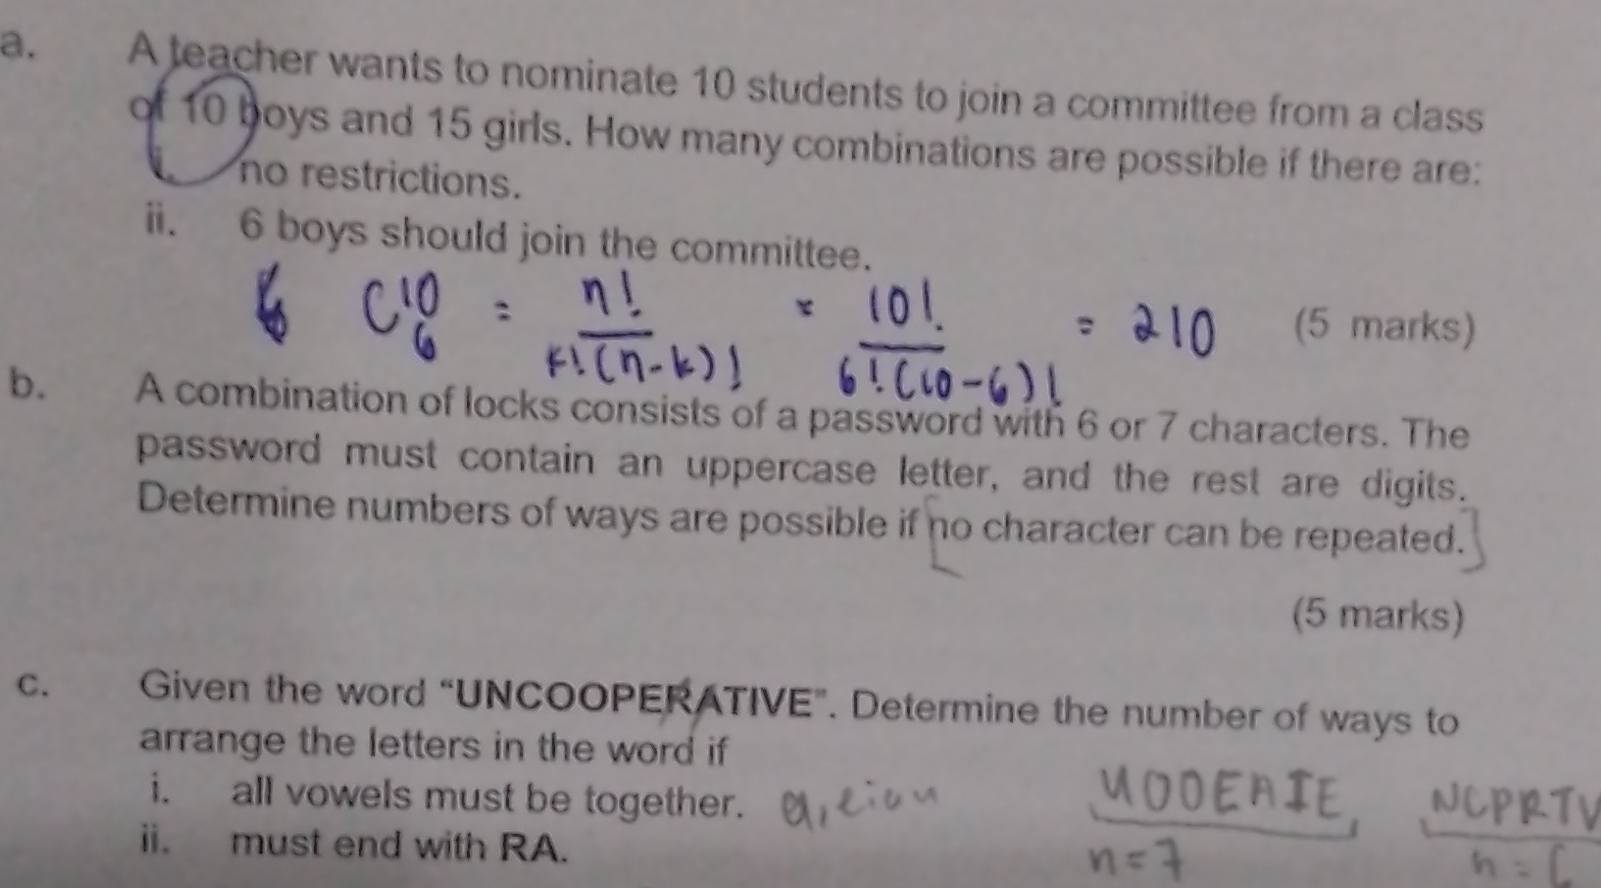 a. A teacher wants to nominate 10 students to join a committee from a class
of 10 boys and 15 girls. How many combinations are possible if there are:
i. no restrictions.
ii. 6 boys should join the committee.
6 C 10 6 = n! / k!(n-k)! = 10! / 6!(10-6)! = 210 (5 marks)
b. A combination of locks consists of a password with 6 or 7 characters. The
password must contain an uppercase letter, and the rest are digits.
Determine numbers of ways are possible if [no character can be repeated.]
(5 marks)
c. Given the word “UNCOOPERATIVE”. Determine the number of ways to
arrange the letters in the word if
i. all vowels must be together. a,eiou UOOEAIE, NCPRTV
ii. must end with RA. n=7 n=6